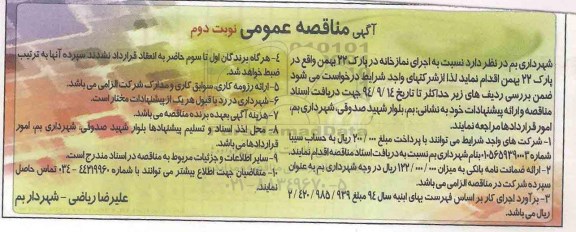 آگهی مناقصه عمومی نوبت دوم
شهرداری بم در نظر دارد نسبت به اجرای نمازخانه در پارک ۲۲ بهمن واقع در
پارک ۲۲ بهمن اقدام نماید لذا از شرکتهای واجد شرایط درخواست می شود
ضمن بررسی ردیف های زیر حداکثر تا تاریخ ۹۴/۹/۱۴ جهت دریافت اسناد
مناقصه وارائه پیشنهادات خود به نشانی: بم، بلوار شهید صدوقی، شهرداری بم،
امور قراردادها مراجعه نمایند.
۱- شرکت های واجد شرایط می توانند با پرداخت مبلغ ۲۰۰/۰۰۰ ریال به حساب سیبا
شماره ۰۱۰۵۶۵۹۳۹۰۰۳ بنام شهرداری بم نسبت به دریافت اسناد مناقصه اقدام نمایند.
۲- ارائه ضمانت نامه بانکی به میزان ۱۳۲/۰۰۰/۰۰۰ ریال در وجه شهرداری بم به عنوان
سپرده شرکت در مناقصه الزامی می باشد.
۳- برآورد اجرای کار بر اساس فهرست بهای ابنیه سال ۹۴ مبلغ ۲/۴۲۰/۹۸۵/۹۳۹
ریال می باشد.
۴- هرگاه برندگان اول تا سوم حاضر به انعقاد قرارداد نشدند سپرده آنها به ترتیب
ضبط خواهد شد.
۵- ارائه رزومه کاری، سوابق کاری و مدارک شرکت الزامی می باشد.
۶- شهرداری در رد یا قبول هر یک از پیشنهادات مختار است.
۷- هزینه آگهی بعهده برنده مناقصه می باشد.
۸- محل اخذ اسناد و تسلیم پیشنهادها بلوار شهید صدوقی، شهرداری بم، امور
قراردادها می باشد.
۹- سایر اطلاعات و جزئیات مربوط به مناقصه در اسناد مندرج است.
۱۰- متقاضیان جهت اطلاع بیشتر می توانند با شماره ۴۴۲۱۹۹۶۰-۰۳۴ تماس حاصل
نمایند.
علیرضا ریاضی - شهردار بم